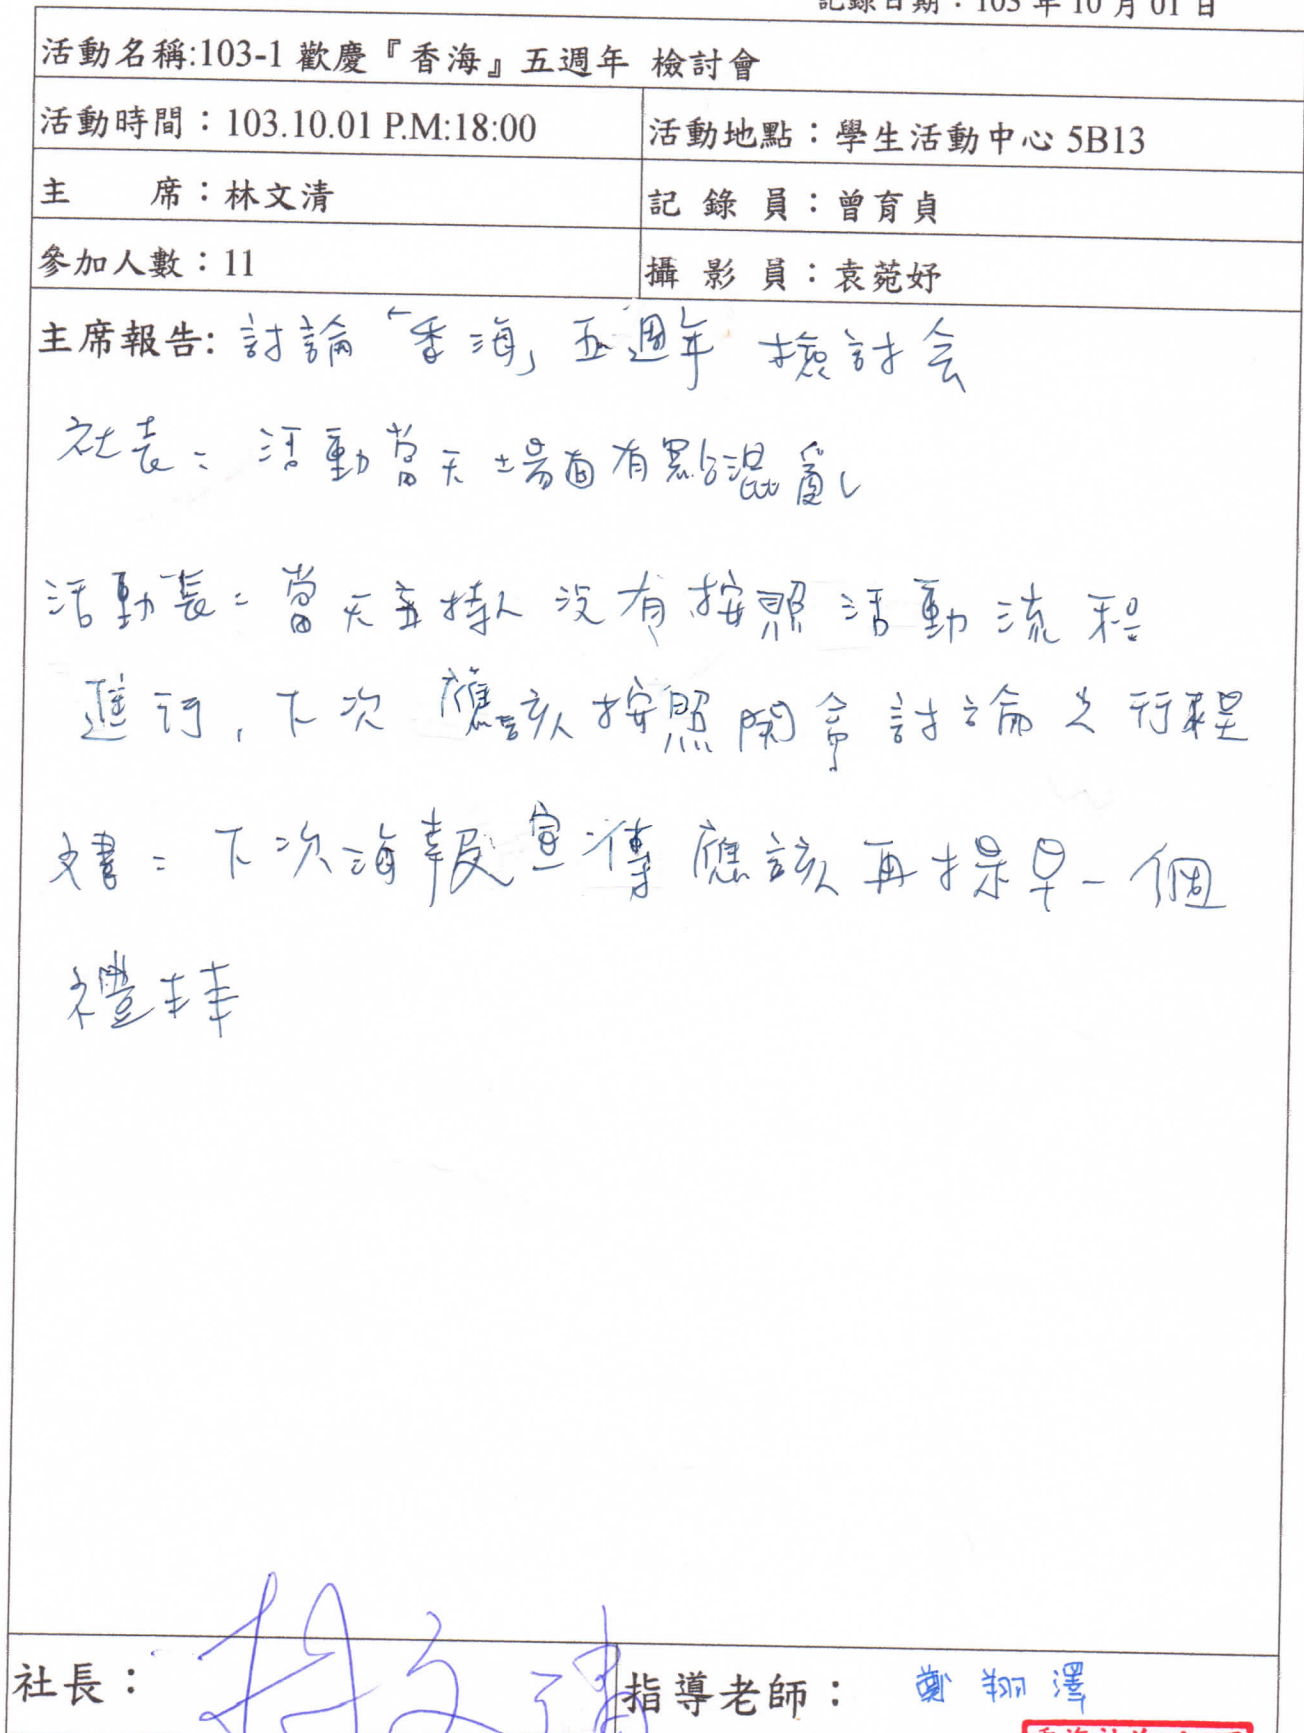 記錄日期：103 年 10 月 01 日
活動名稱:103-1 歡慶『香海』五週年 檢討會
活動時間：103.10.01 P.M:18:00 活動地點：學生活動中心 5B13
主 席：林文清 記 錄 員：曾育貞
參加人數：11 攝 影 員：袁菀妤
主席報告: 討論「香海」五週年 檢討会
社長：活動當天場面有點混亂
活動長：當天主持人沒有按照活動流程
進行，下次應該按照開會討論之行程
文書：下次海報宣傳應該再提早一個
禮拜
社長：林文清 指導老師：鄭翔澤